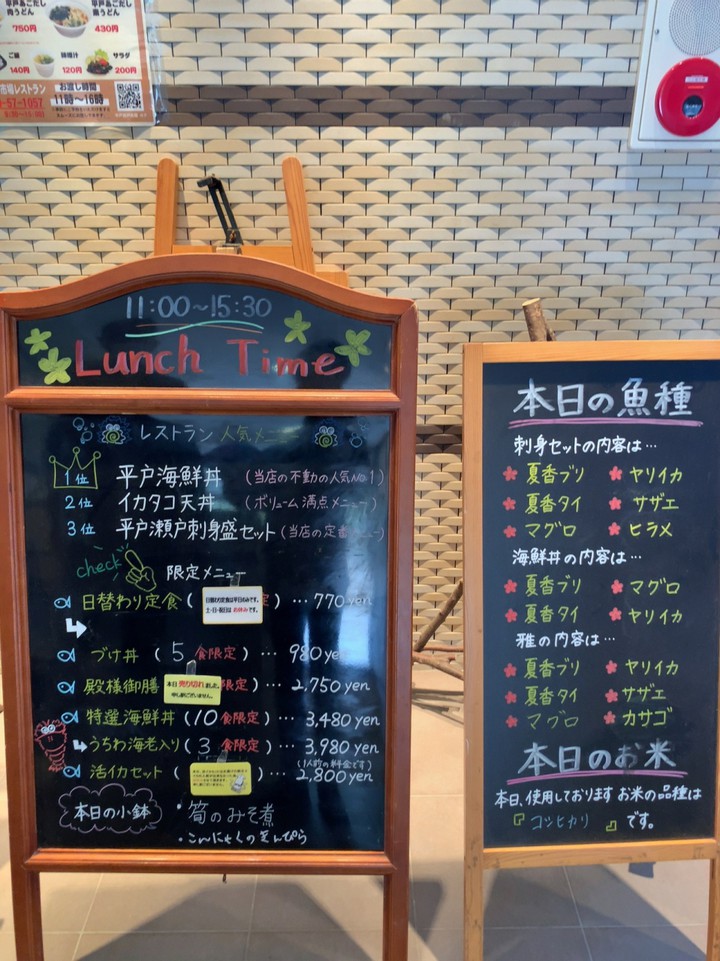 平戸あごだし
肉うどん
750円
平戸あごだし
430円
140円
味噌汁
120円
サラダ
200円
市場レストラン
57-1057
お渡し時間
11時〜16時
11:00〜15:30
Lunch Time
レストラン 人気メニュー
1位 平戸海鮮丼 (当店の不動の人気No1)
2位 イカタコ天丼 (ボリューム満点メニュー)
3位 平戸瀬戸刺身盛セット (当店の定番メニュー)
check 限定メニュー
日替わり定食 ( ) … 770 yen
日替り定食は平日のみです。
土・日・祝日は お休みです。
づけ丼 ( 5 食限定 ) … 980 yen
殿様御膳 限定 ) … 2,750 yen
本日 売り切れ ました。
申し訳ございません。
特選海鮮丼 ( 10 食限定 ) … 3,480 yen
うちわ海老入り ( 3 食限定 ) … 3,980 yen
(1人前の料金です)
活イカセット ( ) … 2,800 yen
本日の小鉢
・筍のみそ煮
・こんにゃくのきんぴら
本日の魚種
刺身セットの内容は…
夏香ブリ ヤリイカ
夏香タイ サザエ
マグロ ヒラメ
海鮮丼の内容は…
夏香ブリ マグロ
夏香タイ ヤリイカ
雅の内容は…
夏香ブリ ヤリイカ
夏香タイ サザエ
マグロ カサゴ
本日のお米
本日、使用しております お米の品種は
『 コシヒカリ 』です。